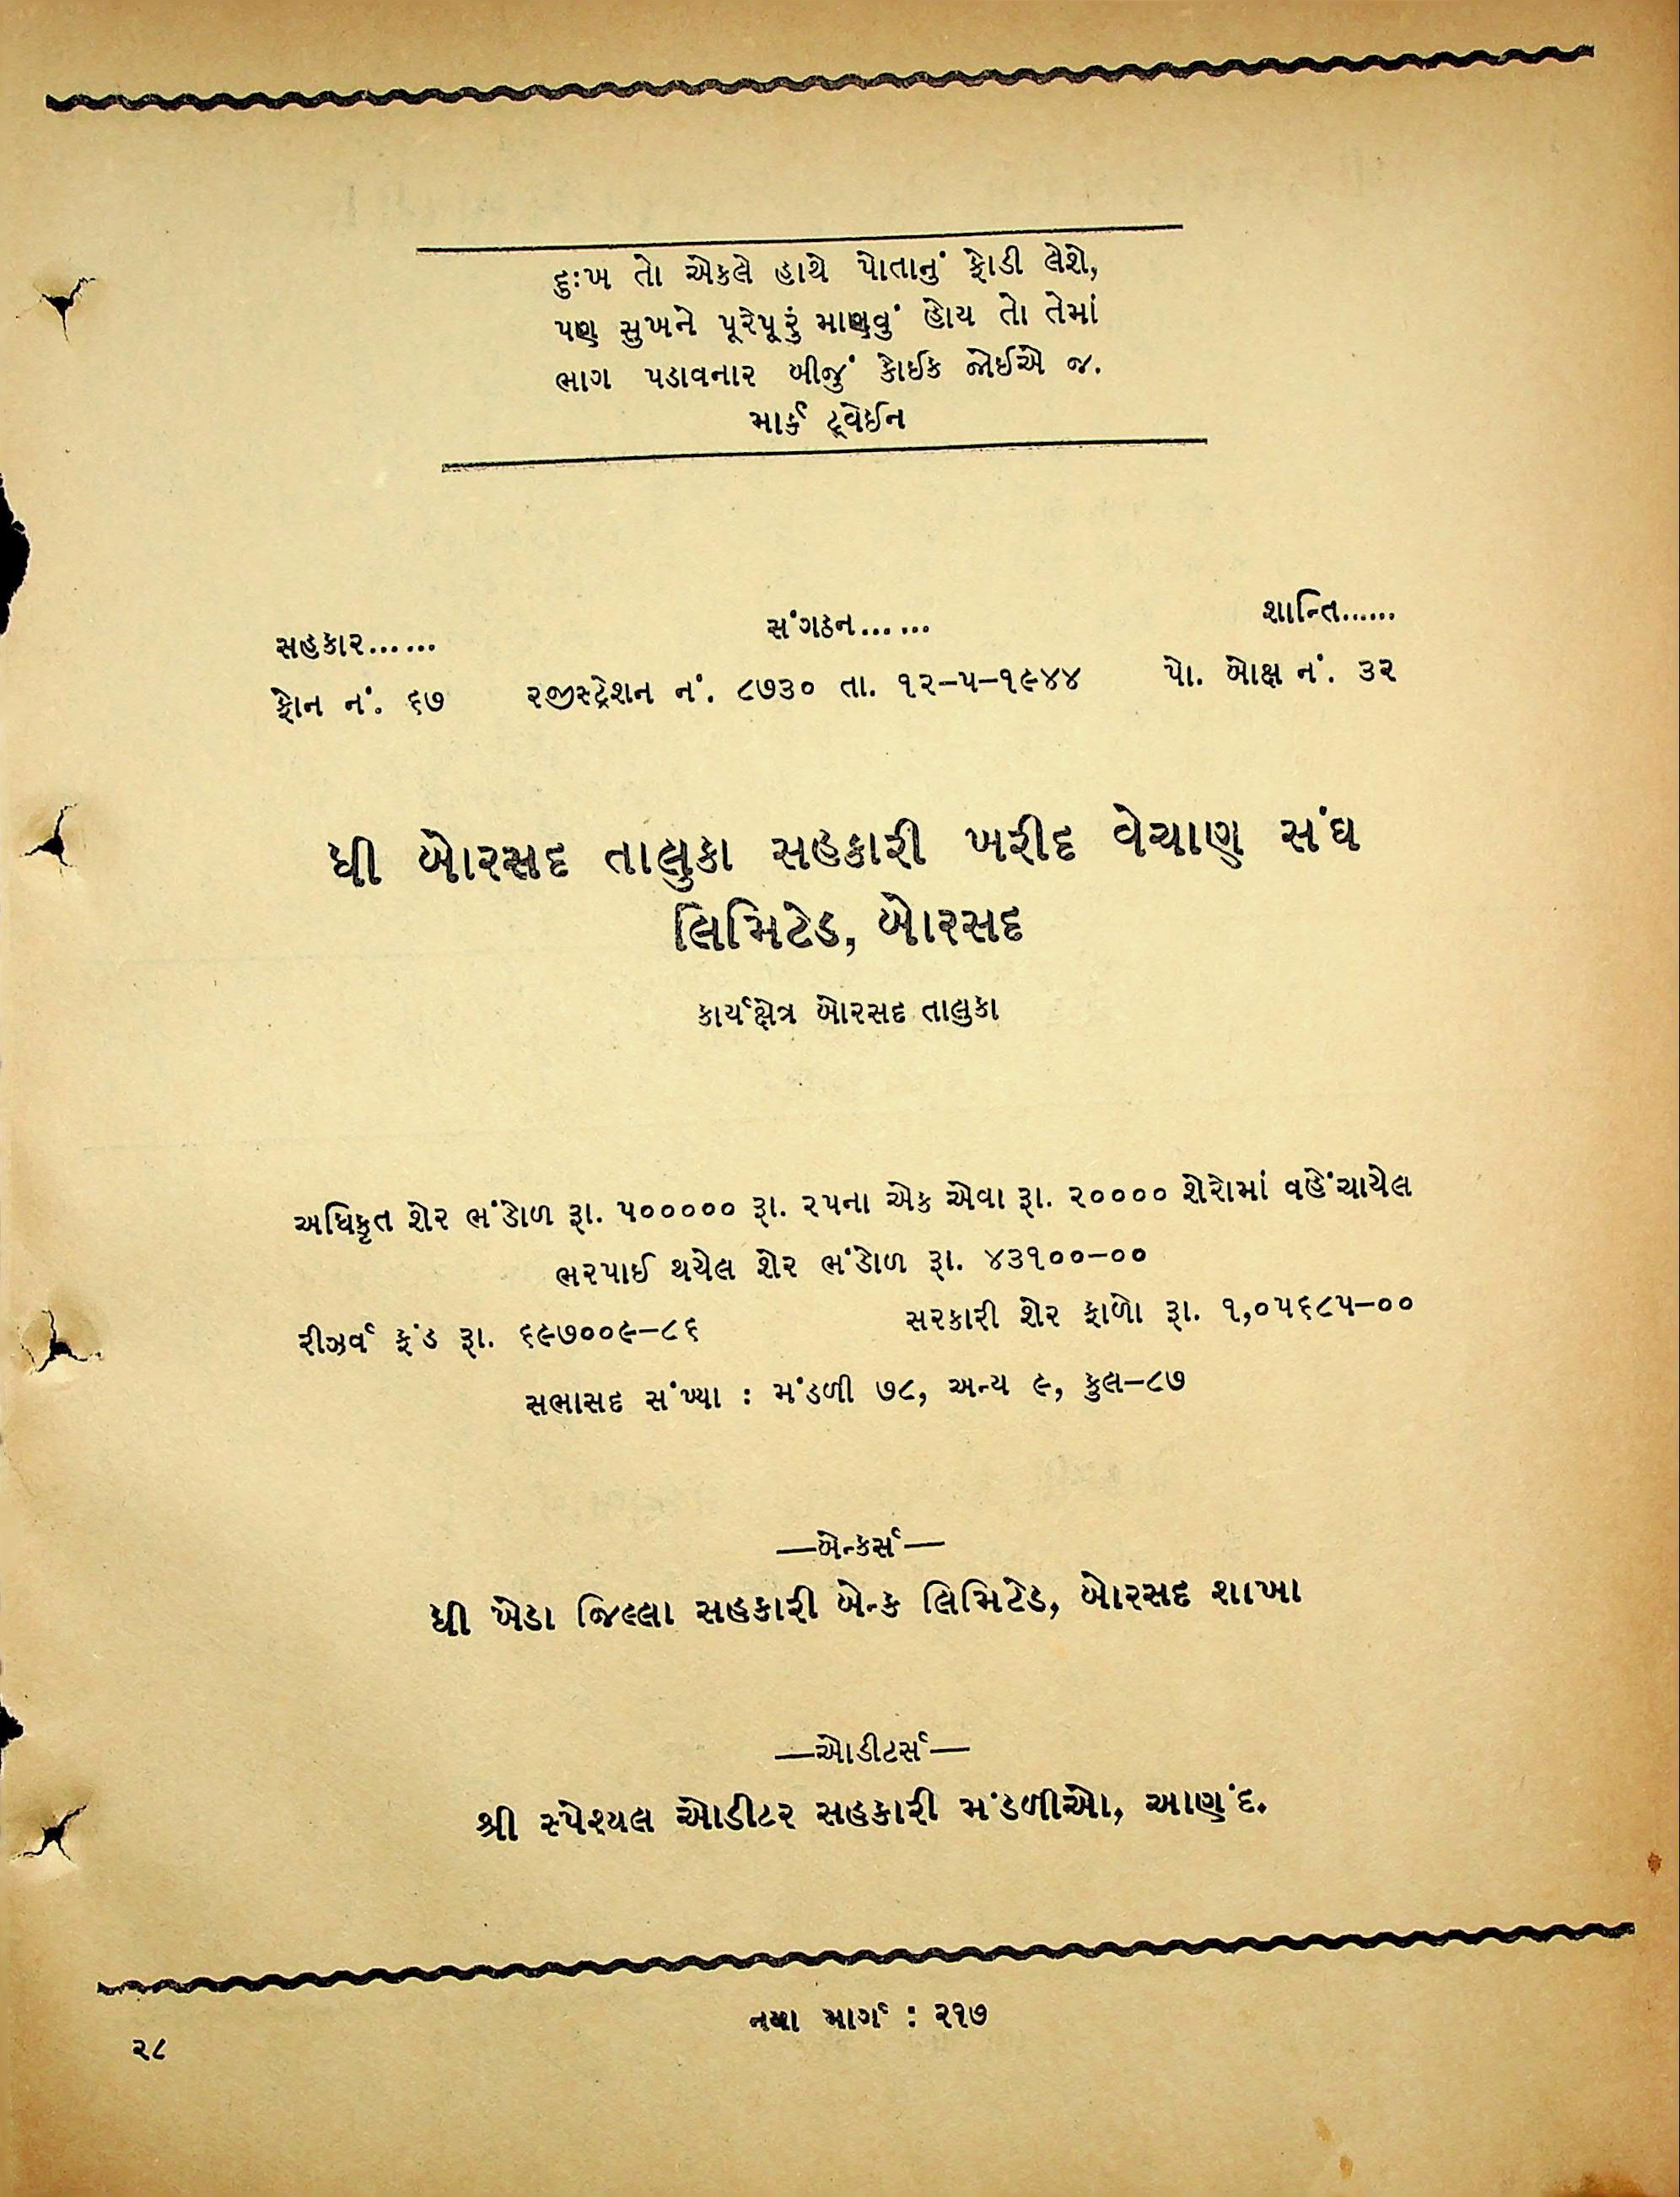 દુઃખ તો એકલે હાથે પોતાનું ફોડી લેશે,
પણ સુખને પૂરેપૂરું માણવું હોય તો તેમાં
ભાગ પડાવનાર બીજું કોઈક જોઈએ જ.
માર્ક ટ્વેઈન
સહકાર...... સંગઠન...... શાન્તિ......
ફોન નં. ૬૭ રજીસ્ટ્રેશન નં. ૮૭૩૦ તા. ૧૨-૫-૧૯૪૪ પો. બોક્ષ નં. ૩૨
ધી બોરસદ તાલુકા સહકારી ખરીદ વેચાણ સંઘ
લિમિટેડ, બોરસદ
કાર્યક્ષેત્ર બોરસદ તાલુકા
અધિકૃત શેર ભંડોળ રૂા. ૫૦૦૦૦૦ રૂા. ૨૫ના એક એવા રૂા. ૨૦૦૦૦ શેરોમાં વહેંચાયેલ
ભરપાઈ થયેલ શેર ભંડોળ રૂા. ૪૩૧૦૦-૦૦
રીઝર્વ ફંડ રૂા. ૬૯૭૦૦૯-૮૬ સરકારી શેર ફાળો રૂા. ૧,૦૫૬૮૫-૦૦
સભાસદ સંખ્યા : મંડળી ૭૮, અન્ય ૯, કુલ-૮૭
—બેન્કર્સ—
ધી ખેડા જિલ્લા સહકારી બેન્ક લિમિટેડ, બોરસદ શાખા
—ઓડીટર્સ—
શ્રી સ્પેશ્યલ ઓડીટર સહકારી મંડળીઓ, આણંદ.
નયા માર્ગ : ૨૧૭
૨૮